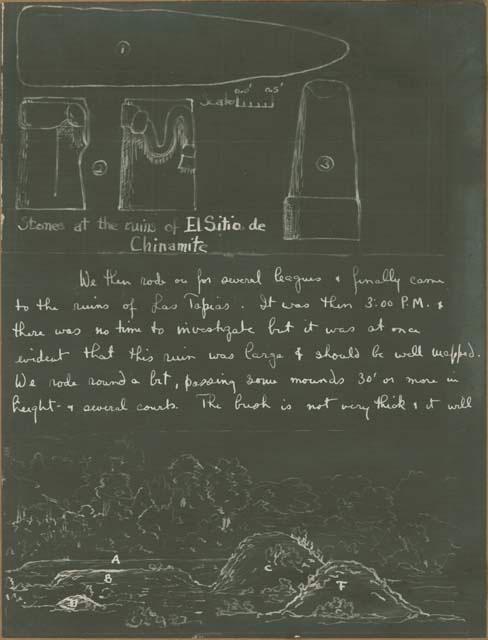 1
Scale 0.0' 0.5'
2
3
Stones at the ruins of El Sitio de
Chinamite
We then rode on for several leagues & finally came
to the ruins of Las Tapias. It was then 3:00 P.M. &
there was no time to investigate but it was at once
evident that this ruin was large & should be well mapped.
We rode round a bit, passing some mounds 30' or more in
height & several courts. The bush is not very thick & it will
A
B
C
D
F